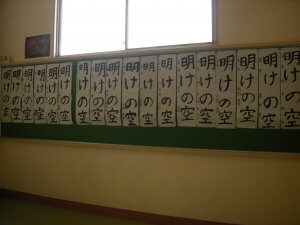 明けの空
明けの空
明けの空
明けの空
明けの空
明けの空
明けの空
明けの空
明けの空
明けの空
明けの空
明けの空
明けの空
明けの空
明けの空
明けの空
明けの空
明けの空